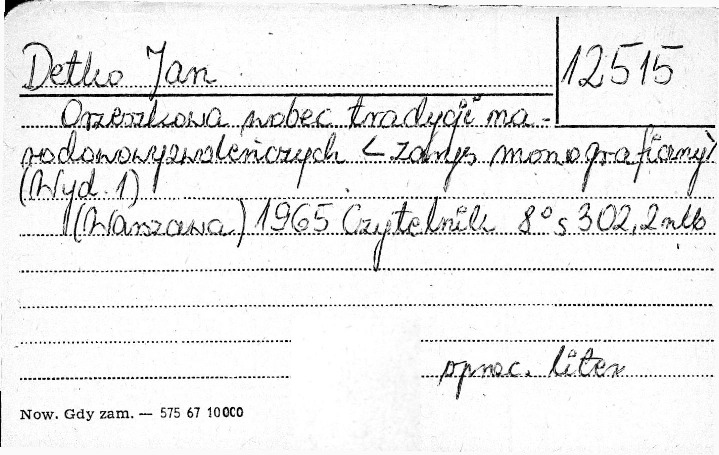 Detko Jan
12515
Orzeszkowa wobec tradycji na-
rodowowyzwoleńczych <zarys monograficzny>
(Wyd. 1)
(Warszawa) 1965 Czytelnik 8° s 302, 2 nlb
oprac. liter
Now. Gdy zam. — 575 67 10000